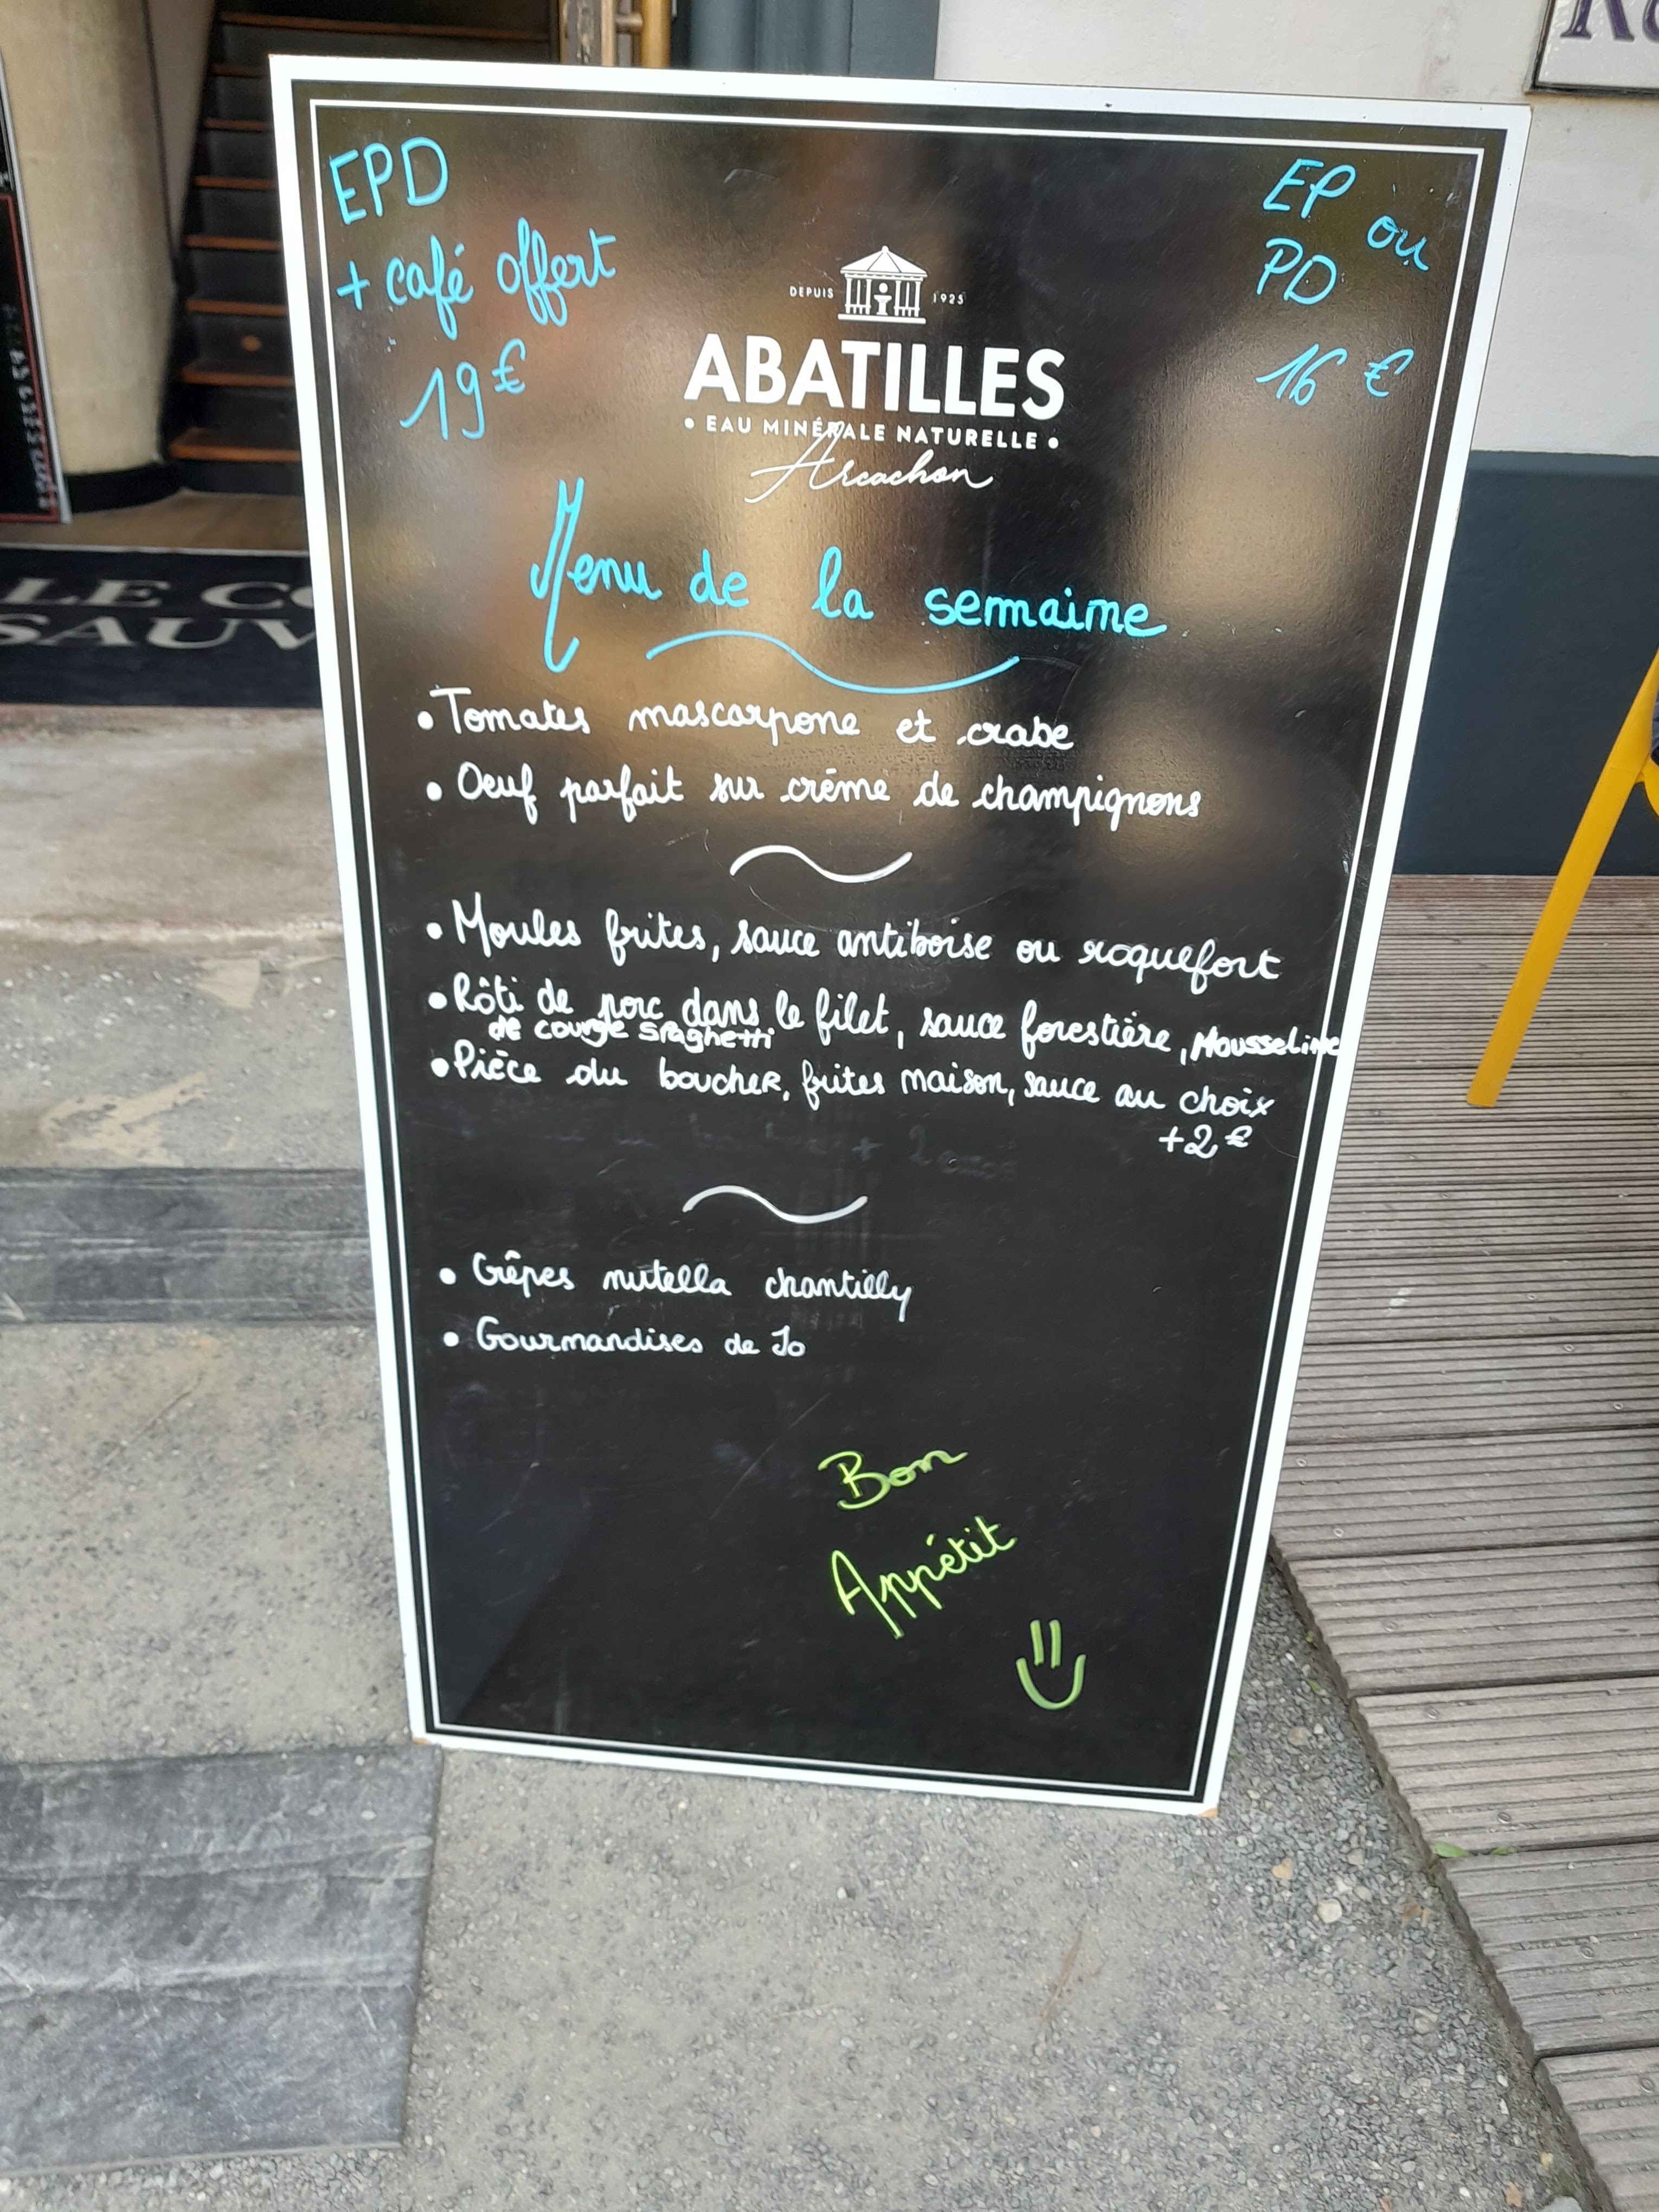 EPD
+ café offert
19€
EP ou
PD
16 €
DEPUIS 1925
ABATILLES
• EAU MINÉRALE NATURELLE •
Arcachon
Menu de la semaine
• Tomates mascarpone et crabe
• Oeuf parfait sur crème de champignons
• Moules frites, sauce antiboise ou roquefort
• Rôti de porc dans le filet, sauce forestière, Mousseline
de courge spaghetti
• Pièce du boucher, frites maison, sauce au choix
+2€
• Crêpes nutella chantilly
• Gourmandises de Jo
Bon
Appétit
LE CO
SAUV